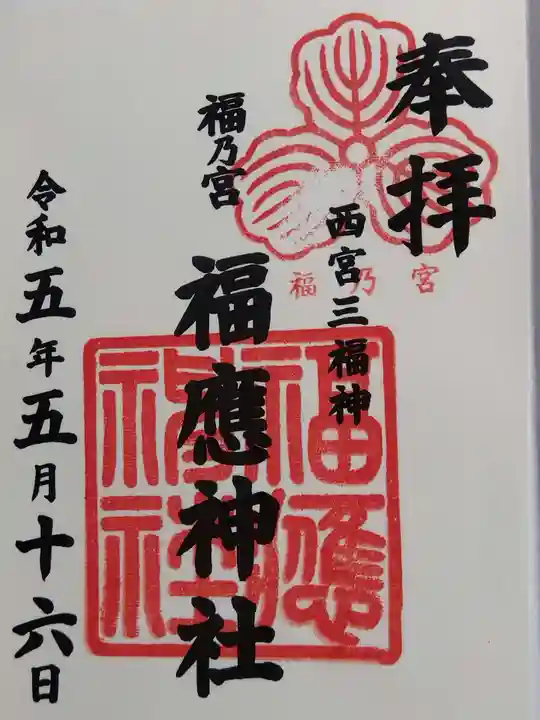 奉拝
西宮三福神
福乃宮
福應神社
令和五年五月十六日
福乃宮
福應神社